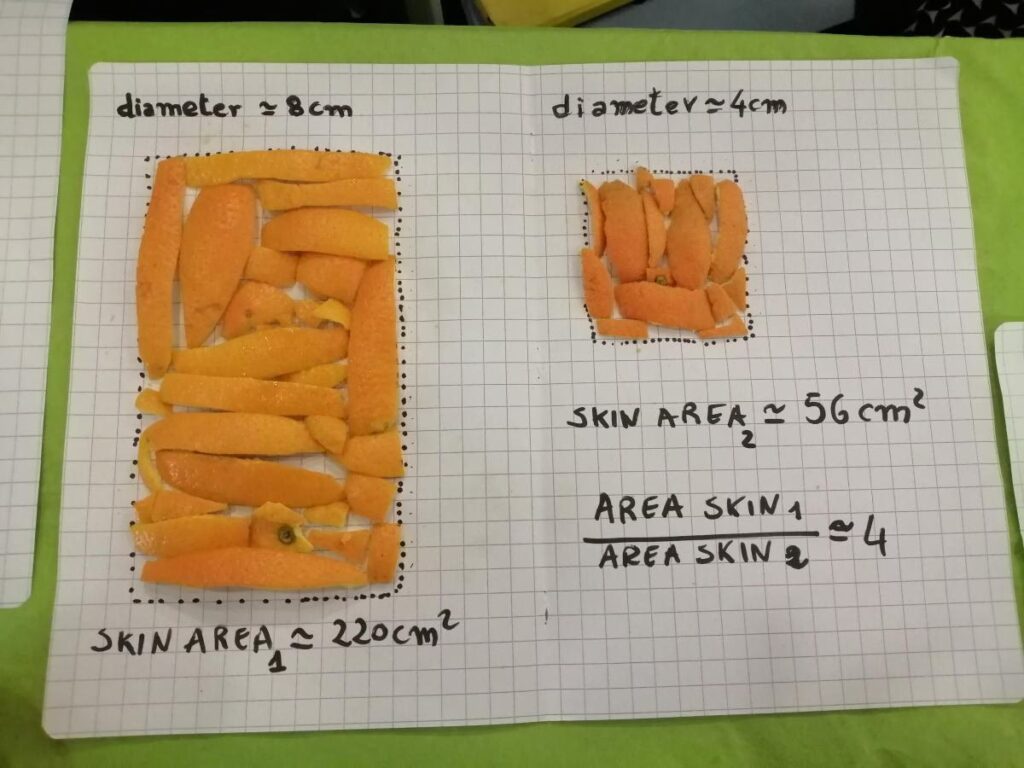 diameter ≃ 8cm
SKIN AREA₁ ≃ 220cm²
diameter ≃ 4cm
SKIN AREA₂ ≃ 56cm²
AREA SKIN 1
AREA SKIN 2
≃ 4